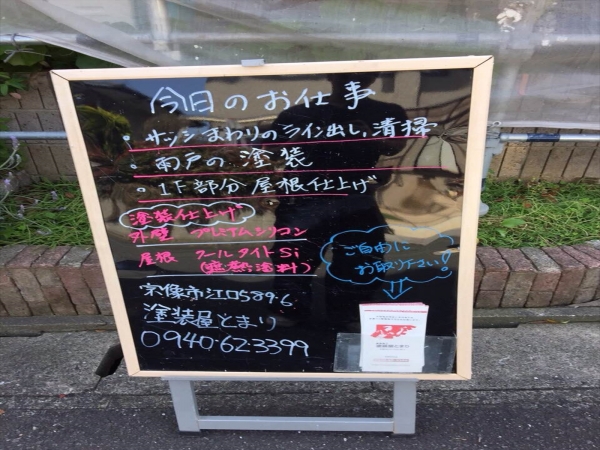 今日のお仕事
・サッシまわりのライン出し、清掃
・雨戸の塗装
・1F部分屋根仕上げ
塗装仕上げ
外壁 プレミアムシリコン
屋根 クールタイトSi
(遮熱塗料)
ご自由に
お取り下さい!
宗像市江口589-6
塗装屋とまり
0940-62-3399